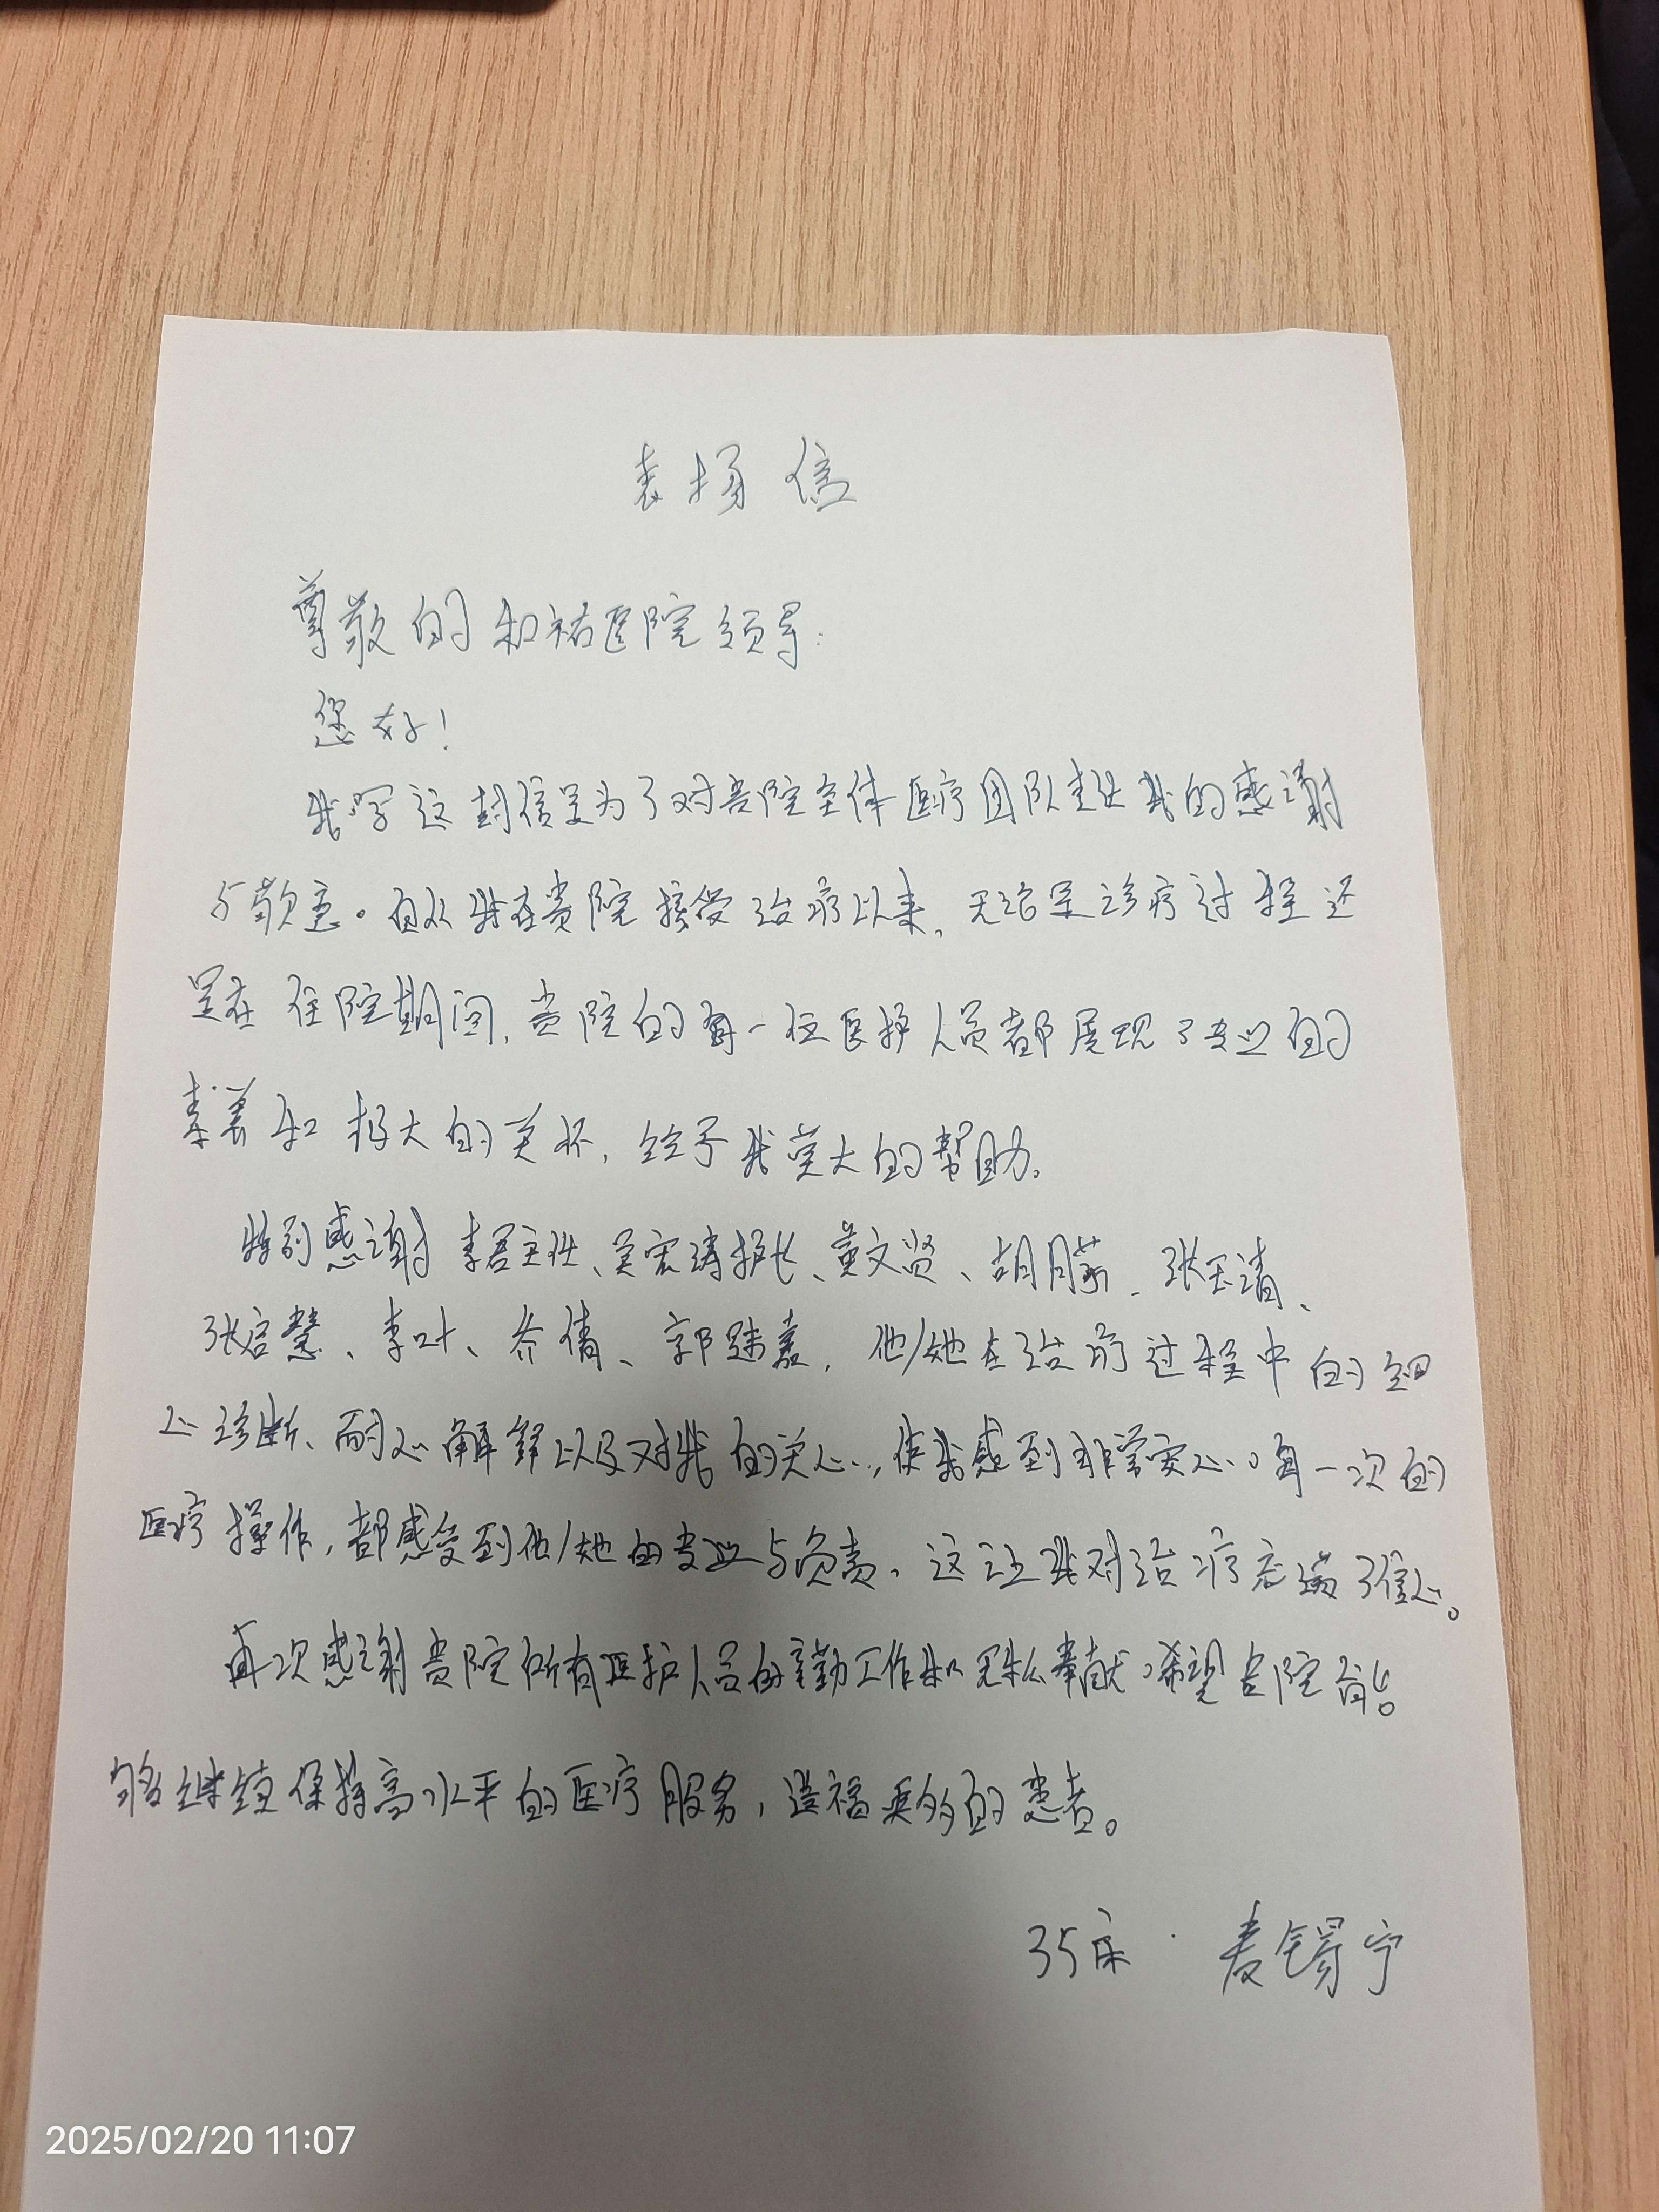 表扬信
尊敬的和祐医院领导:
您好!
我写这封信是为了对贵院全体医疗团队表达我的感谢
与歉意。自从我在贵院接受治疗以来,无论是诊疗过程还
是在住院期间,贵院的每一位医护人员都展现了专业的
素养和极大的关怀,给予我莫大的帮助。
特别感谢李君主任、吴宏涛护长、黄文贤、胡月、张玉清、
张启慧、李叶、乔倩、郭嘉,他/她在治疗过程中的细
心诊断、耐心解释以及对我的关心,使我感到非常安心。每一次的
医疗操作,都感受到他/她的专业与负责。这让我对治疗充满了信心。
再次感谢贵院所有医护人员的辛勤工作和无私奉献。希望贵院能
够继续保持高水平的医疗服务,造福更多的患者。
35床 麦锡宁
2025/02/20 11:07